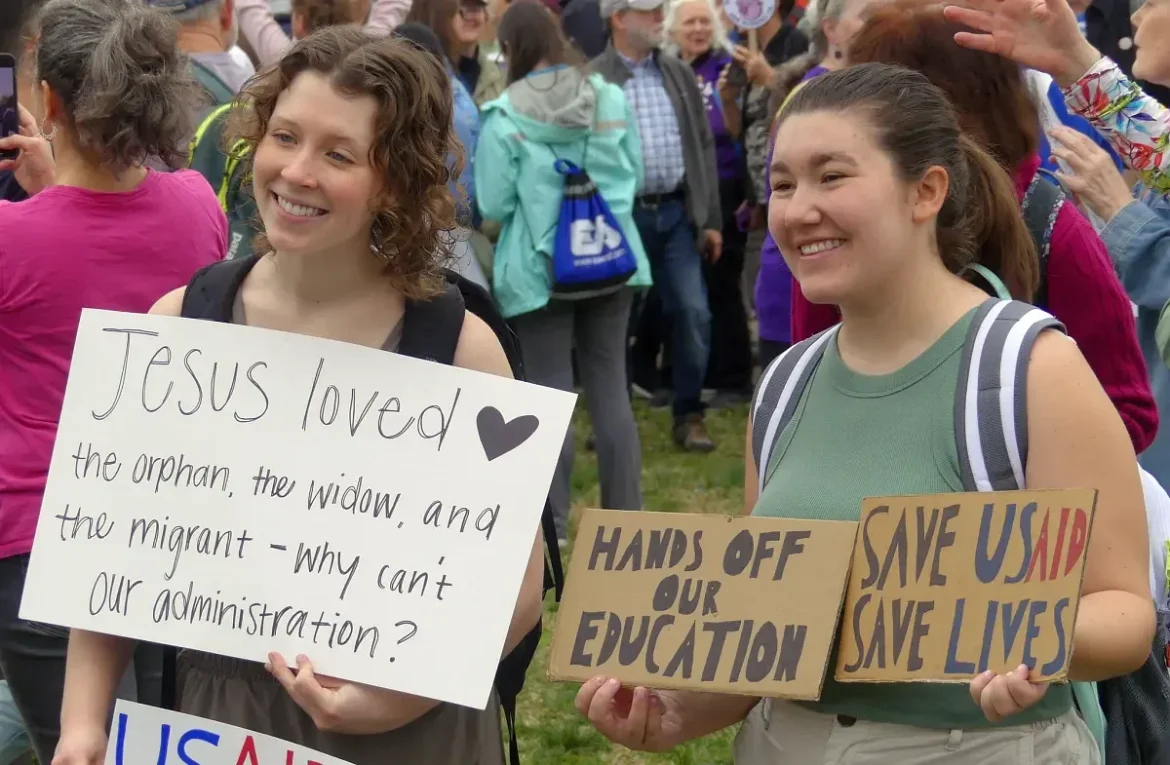 Jesus loved
the orphan, the widow, and
the migrant - why can't
our administration?
USAI
HANDS OFF
OUR
EDUCATION
SAVE USAID
SAVE LIVES